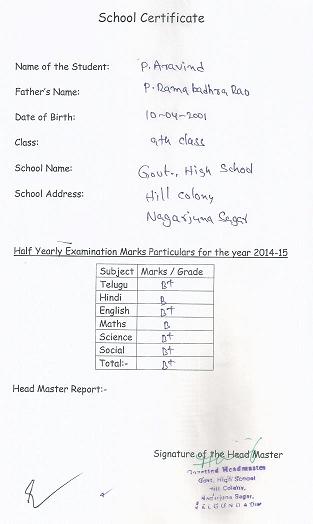 School Certificate
Name of the Student: P. Aravind
Father's Name: P. Rama badhra Rao
Date of Birth: 10-04-2001
Class: 9th class
School Name: Govt., High School
School Address: Hill colony
Nagarjuna Sagar
Half Yearly Examination Marks Particulars for the year 2014-15
Subject Marks / Grade
Telugu B+
Hindi B
English B+
Maths B
Science B+
Social B+
Total:- B+
Head Master Report:-
Signature of the Head Master
Gazetted Headmaster
Govt. High School
Hill Colony,
Nadarjuna Sagar,